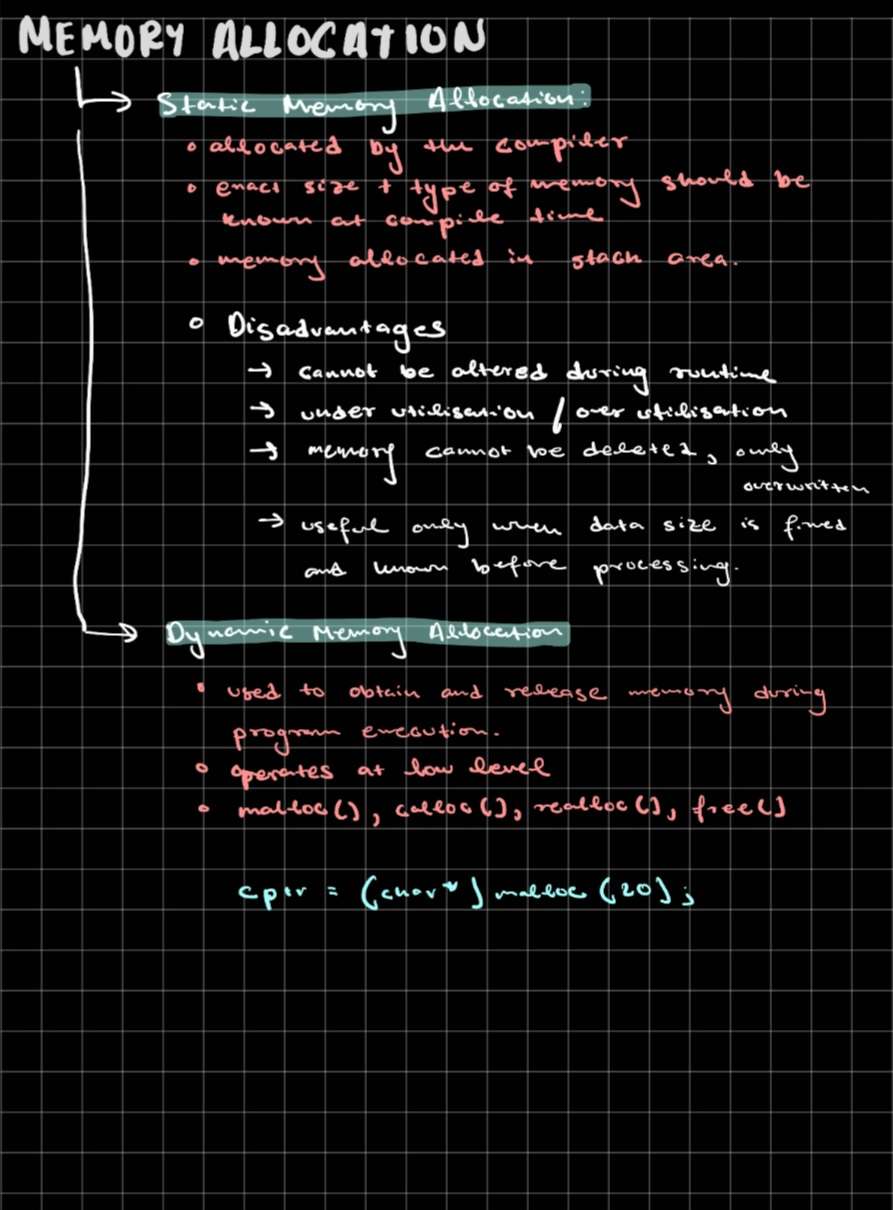 MEMORY ALLOCATION
Static Memory Allocation:
allocated by the compiler
exact size + type of memory should be
known at compile time
memory allocated in stack area.
Disadvantages
→ cannot be altered during runtime
→ under utilisation / over utilisation
→ memory cannot be deleted, only
overwritten
→ useful only when data size is fixed
and known before processing.
Dynamic Memory Allocation
used to obtain and release memory during
program execution.
operates at low level
malloc(), calloc(), realloc(), free()
cptr = (char*) malloc (20);